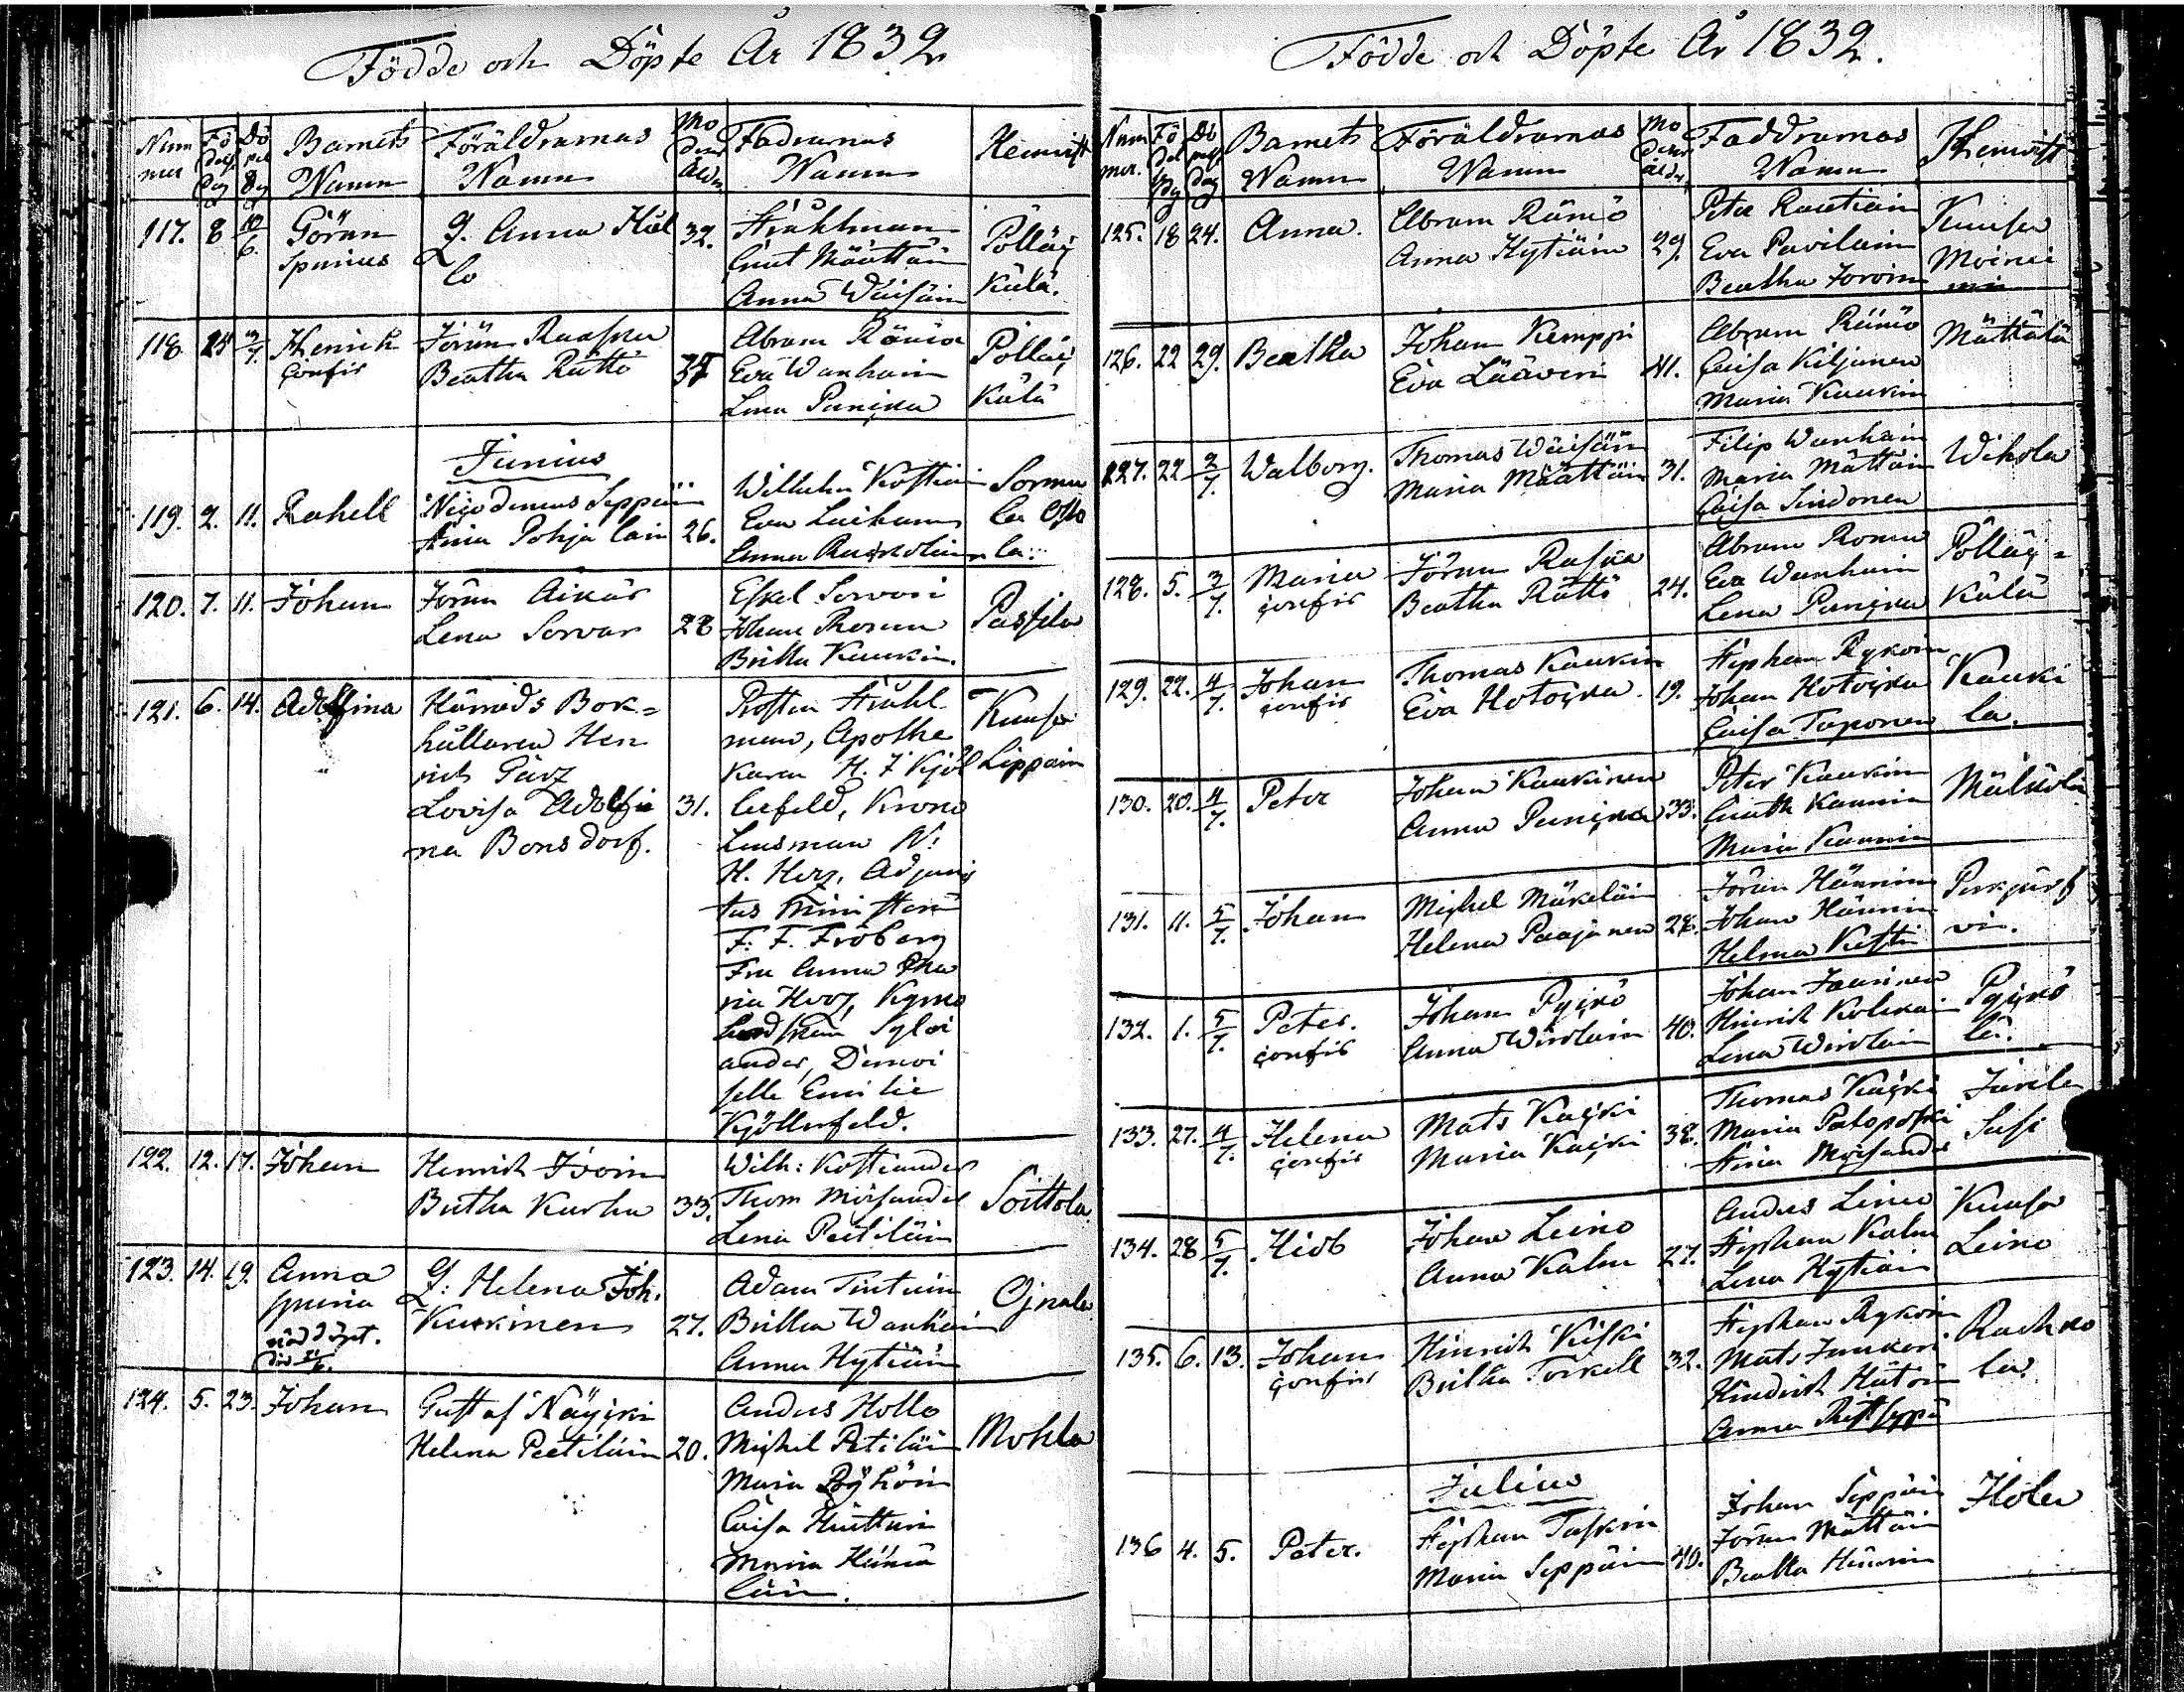 Födde och Döpte År 1832
Num mer
Fö dels dag
Dö pel dag
Barnets Namn
Föräldrarnas Namn
Mo derns ålder
Fadrarnas Namn
Hemvist
117. 8 10/6. Göran Spurius
Q. Anna Häl lo 32.
Ståhlman
Gust Määttäin
Anna Wäisäin
Pölläy Külä.
118 25 3/7. Henrich
Jöran Raaska
Beatha Rättö 37
Abram Römö
Eva Wanhain
Lena Punika
Pölläy Külä
Junius
119. 2. 11. Rahell
Nicodemus Seppäin
Stina Pohjalain 26.
Wilhelm Kostiain
Eva Laihain
Anna
Sormu la Otto la.
120. 7. 11. Johan
Jöran Aikäs
Lena Sorvar 28
Eskel Sorvari
Johan
Britta Kaukin.
Pasfila
121. 6. 14. Adolfina
Härads Bok=
hållaren Hen
rich Pärz
Lovisa Adolfi
na Bonsdorf. 31.
Prosten Ståhl
man, Apothe
karen H. J Kjöl
lerfeld, Krono
Länsman N:
H. Herz, Adjunc
tus Ministerii
F. F. Fröberg
Fru Anna Ma
ria Herz,
Sylv
ander, Demoi
selle Emilie
Kjöllerfeld.
Kuusa Lippain
122. 12. 17. Johan
Henrich Ivoin
Beatha Kurha 33.
Wilh: Kostiander
Thom Moisander
Lena Peetiläin
Soittola
123. 14. 19. Anna spuria
nöddöpt.
Q: Helena Joh.
Kuukinen 27.
Adam Tintuin
Britta Wanhain
Anna Hytiäin
Ojnala
124. 5. 23. Johan
Gustaf Näyki
Helena Peetiläin 20.
Anders Hollo
Michel Petiläin
Maria Pöyhöin
Caisa Huttuin
Maria Hämä
läin.
Mohla
Födde och Döpte År 1832.
Num mer.
Fö del dag
Dö pels dag
Barnets Namn
Föräldrarnas Namn
Mo derns ålder
Faddrarnas Namn
Hemvist
125. 18 24. Anna.
Abram Römö
Anna Hytiäin 29.
Peter Rautiain
Eva Pavilain
Beatha Joroin
Kuusa Moinii
126. 22 29. Beatha
Johan Kemppi
Eva Lääveri 41.
Abram Römö
Caisa Kiljunen
Maria Kaukin
Mättälä
127. 22 2/7. Walborg.
Thomas Wäisäin
Maria Määttäin 31.
Filip Wanhain
Maria Mättäin
Caisa Sindonen
Wihola
128. 5. 3/7. Maria
Jöran Raska
Beatha Rättö 24.
Abram
Eva Wanhain
Lena Punika
Pölläy= Külä
129. 22. 4/7. Johan
Thomas Kaukin
Eva Hotokka. 19.
Stephan Rykoin
Johan Hotokka
Caisa Taponen
Kauki la.
130. 20. 4/7. Peter
Johan Kaukinen
Anna Punika 33.
Peter Kaukin
Agatha Kaunin
Maria Kaunin
Mälkölä
131. 11. 5/7. Johan
Michel Mäkeläin
Helena Paajanen 28.
Jöran Hännin
Johan Hännin
Helena Kosti
Perkjärf vi.
132. 1. 5/7. Peter.
Johan Pykö
Anna Wirolain 40.
Johan Jaurinen
Hinrich Kolikain
Lena Wirolain
Pykö lä.
133. 27. 4/7. Helena
Mats Kaiki
Maria Kaiki 38.
Thomas Kaiki
Maria Patoposki
Stina Moisander
Jurila Susi
134. 28 5/7. Hiob
Johan Leino
Anna Kalm 27.
Anders Leino
Stephan Kalm
Lena Hytiäin
Kuusa Leino
135. 6. 13. Johan
Hinrich Kiiski
Britha Torkell 32.
Stephan Rykoin
Mats Junkeri
Hindrich Hütöin
Anna
Rachko la.
Julius
136 4. 5. Peter.
Stephan Taskin
Maria Seppäin 40.
Johan Seppäin
Jöran Mättäin
Beatha Hännin
Hola